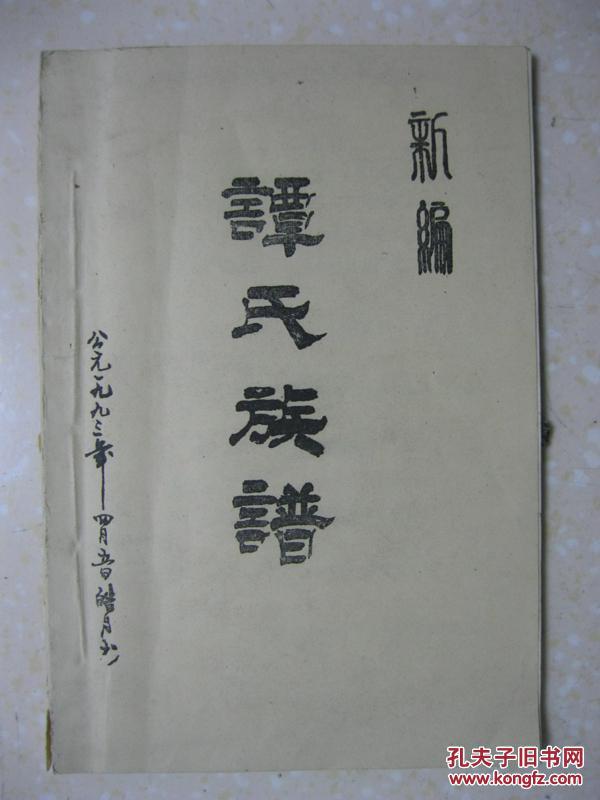 新编
譚氏族譜
公元一九九三年四月
孔夫子旧书网
www.kongfz.com